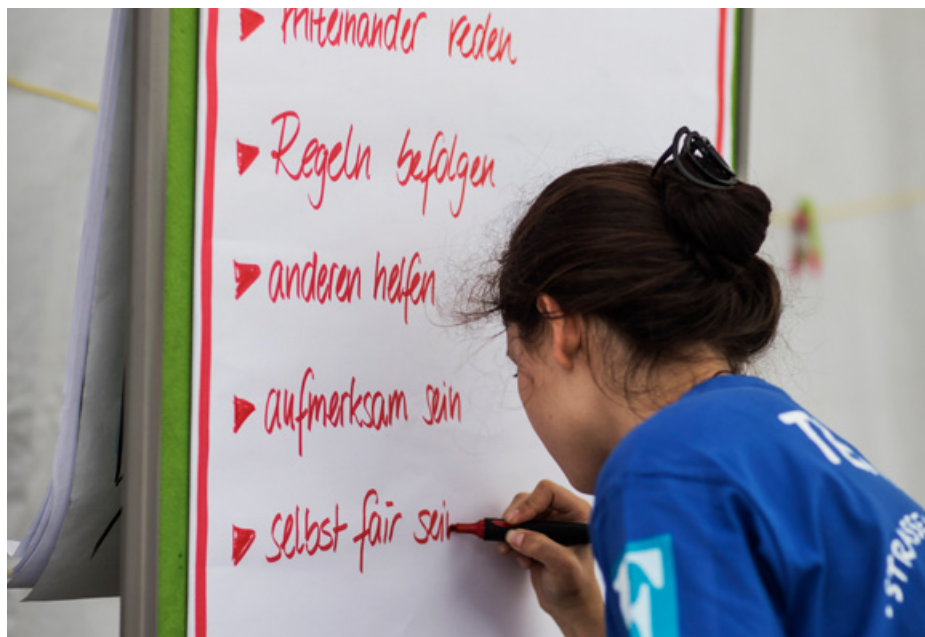 miteinander reden
Regeln befolgen
anderen helfen
aufmerksam sein
selbst fair sein
STRASSE